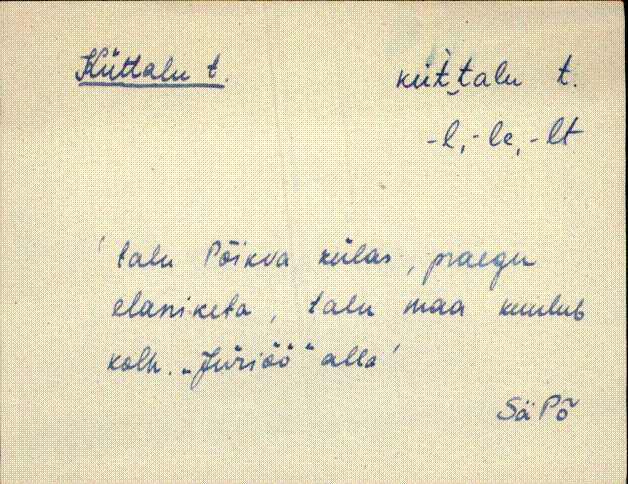 Küttalu t.
küt̀‿talu t.
-l, -le, -lt
'talu Põikva külas, praegu
elaniketa, talu maa kuulub
kolh. „Jüriöö" alla'
SäPõ